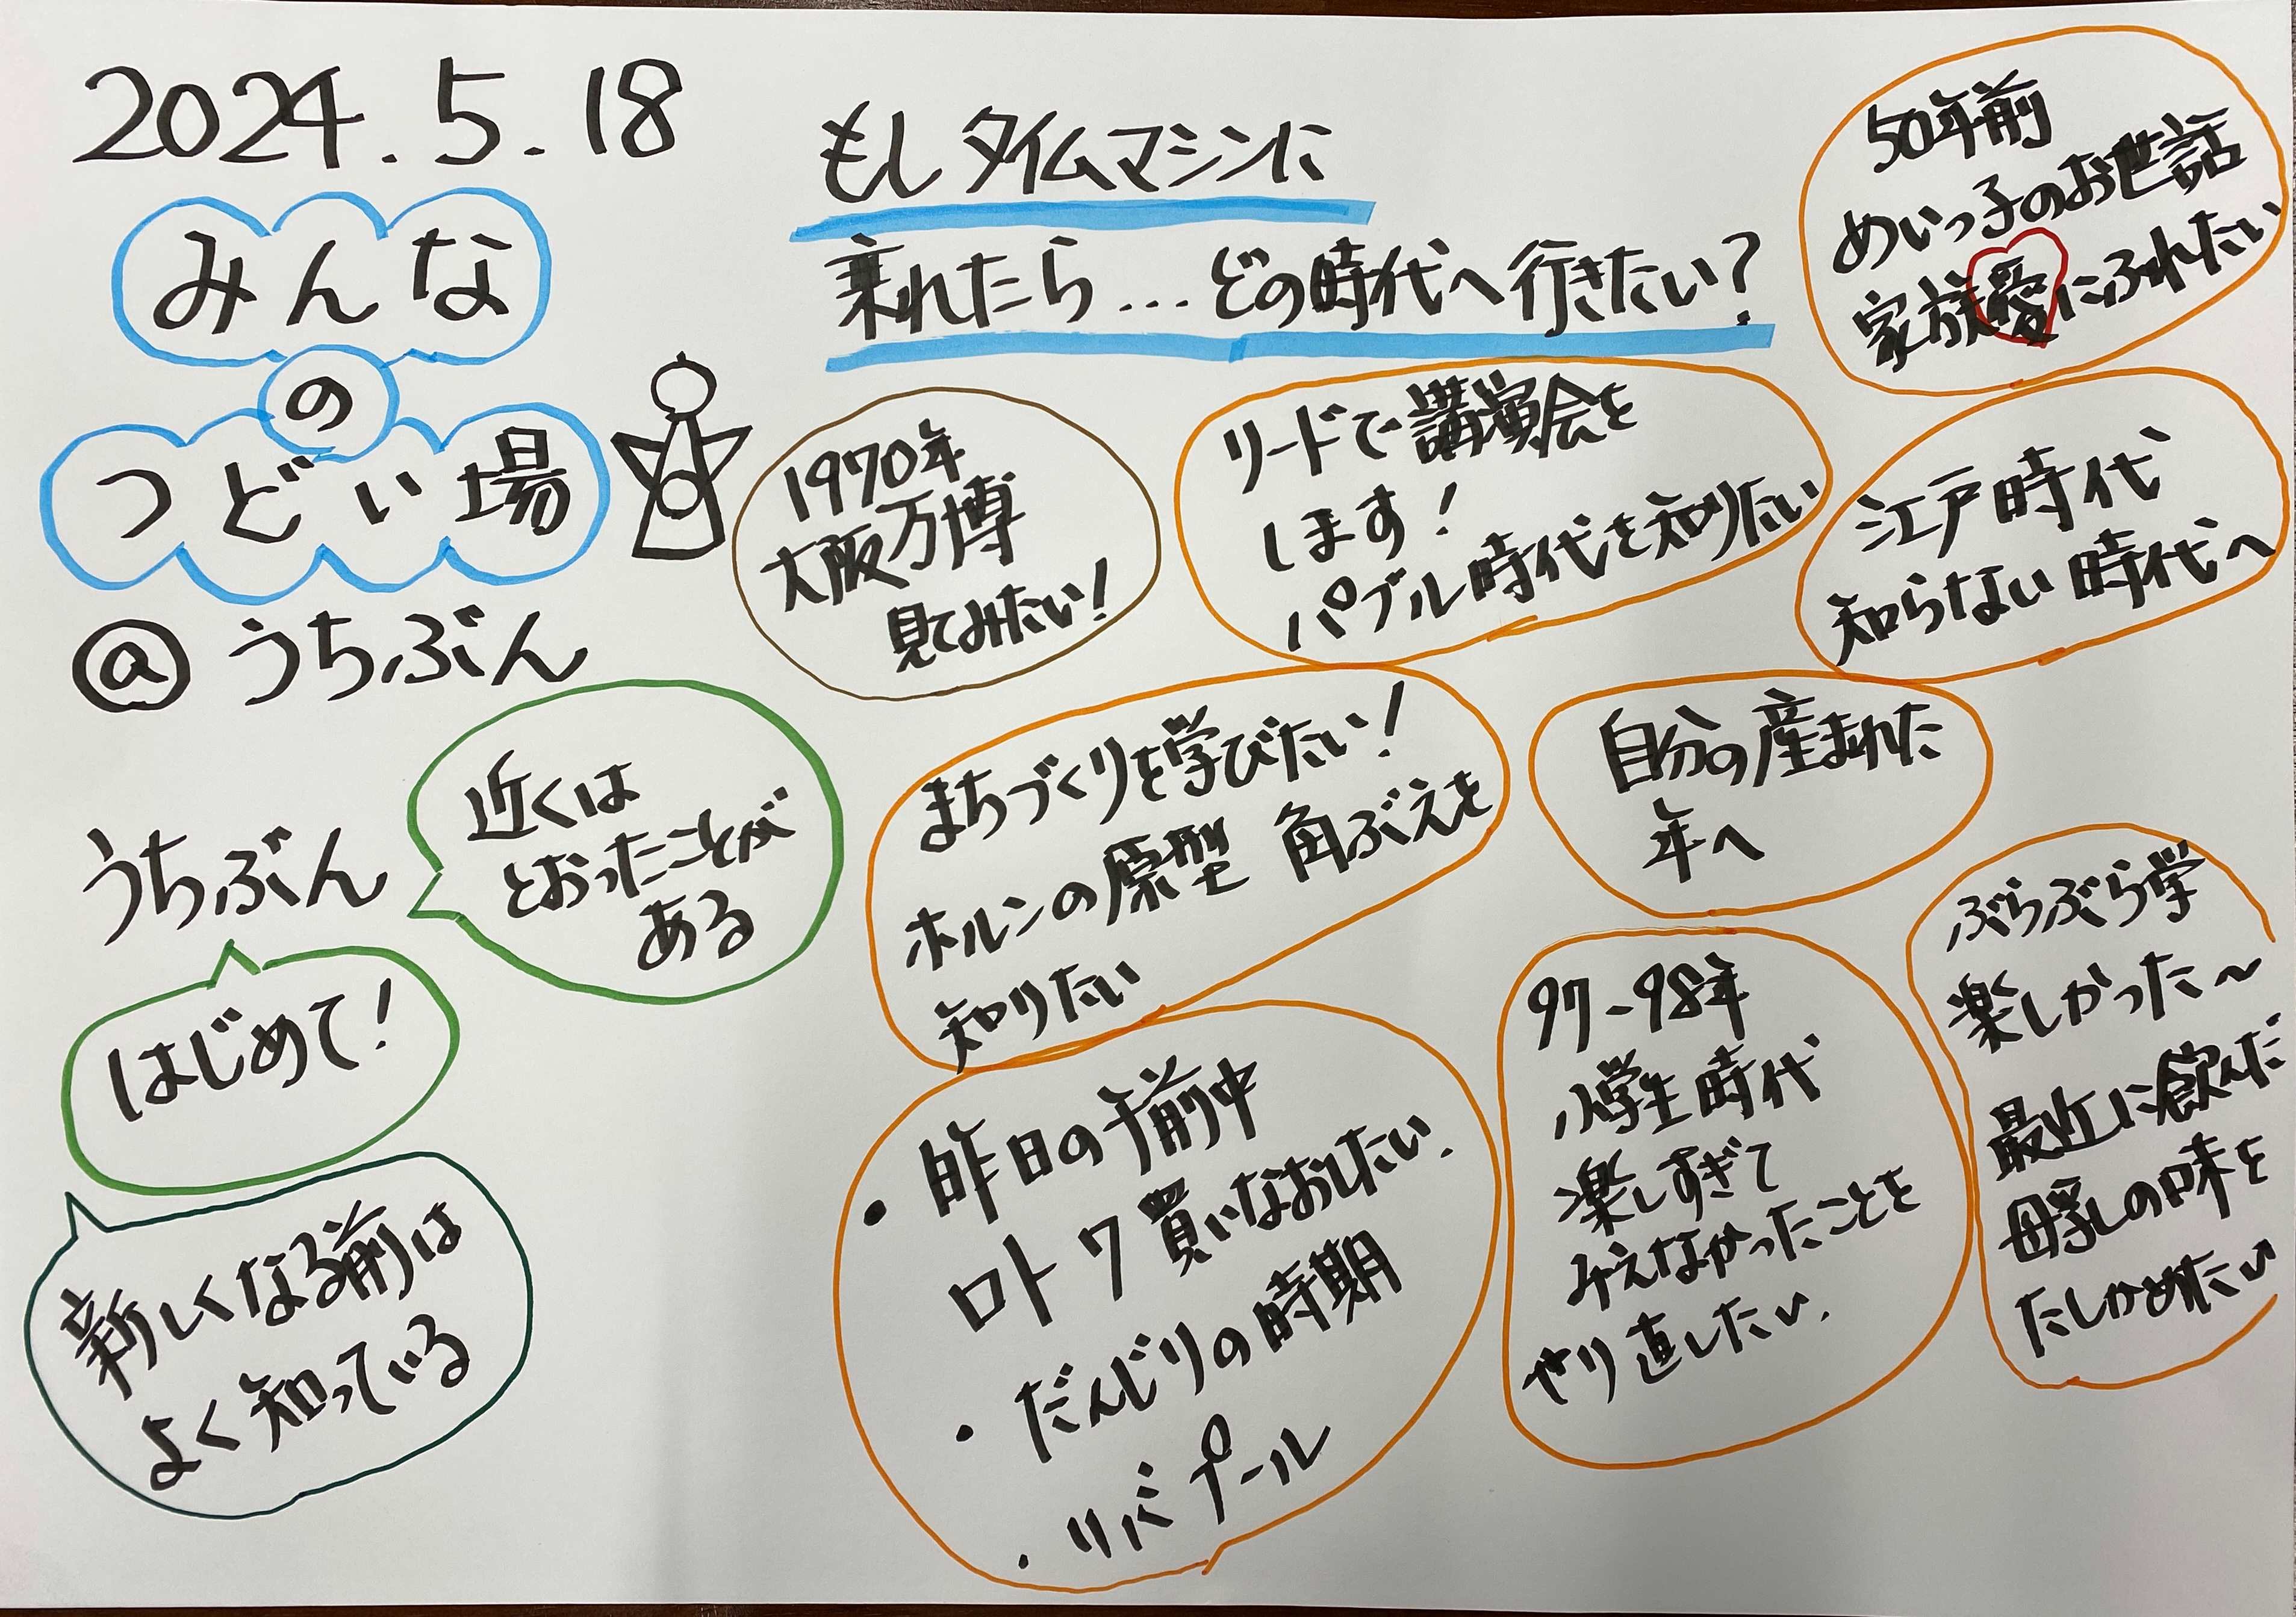 2024.5.18
みんな
の
つどい場
@うちぶん
もしタイムマシンに
乗れたら…どの時代へ行きたい?
50年前
めいっ子のお世話
家族愛にふれたい
1970年
大阪万博
見てみたい!
リードで講演会を
します!
パブル時代を知りたい
江戸時代
知らない時代へ
うちぶん
近くは
とおったことが
ある
はじめて!
新しくなる前は
よく知っている
まちづくりを学びたい!
ホルンの原型 角ぶえを
知りたい
自分の産まれた
年へ
・昨日の午前中
ロト7買いなおしたい.
・だんじりの時期
・リバプール
97-98年
小学生時代
楽しすぎて
みえなかったことを
やり直したい.
ぶらぶら学
楽しかった〜
最近に飲んだ
母乳の味を
たしかめたい